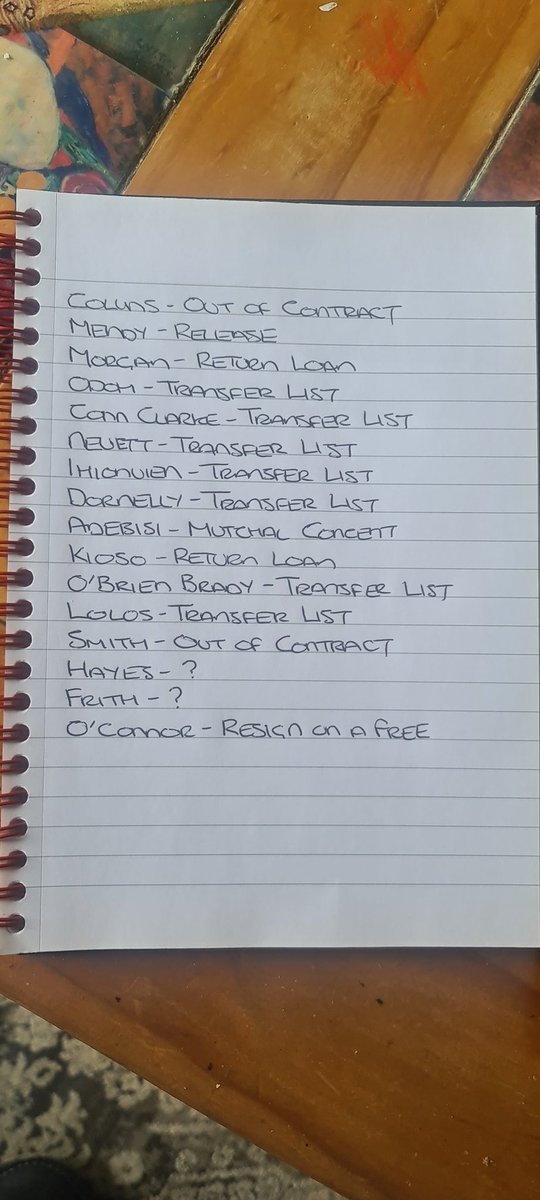 COLLINS - OUT OF CONTRACT
MENDY - RELEASE
MORGAN - RETURN LOAN
ODOH - TRANSFER LIST
COM CLARKE - TRANSFER LIST
NEVETT - TRANSFER LIST
IHIONVIEN - TRANSFER LIST
DORNELLY - TRANSFER LIST
ADEBISI - MUTCHAL CONCETT
KIOSO - RETURN LOAN
O'BRIEN BRADY - TRANSFER LIST
LOLOS - TRANSFER LIST
SMITH - OUT OF CONTRACT
HAYES - ?
FRITH - ?
O'CONNOR - RESIGN ON A FREE